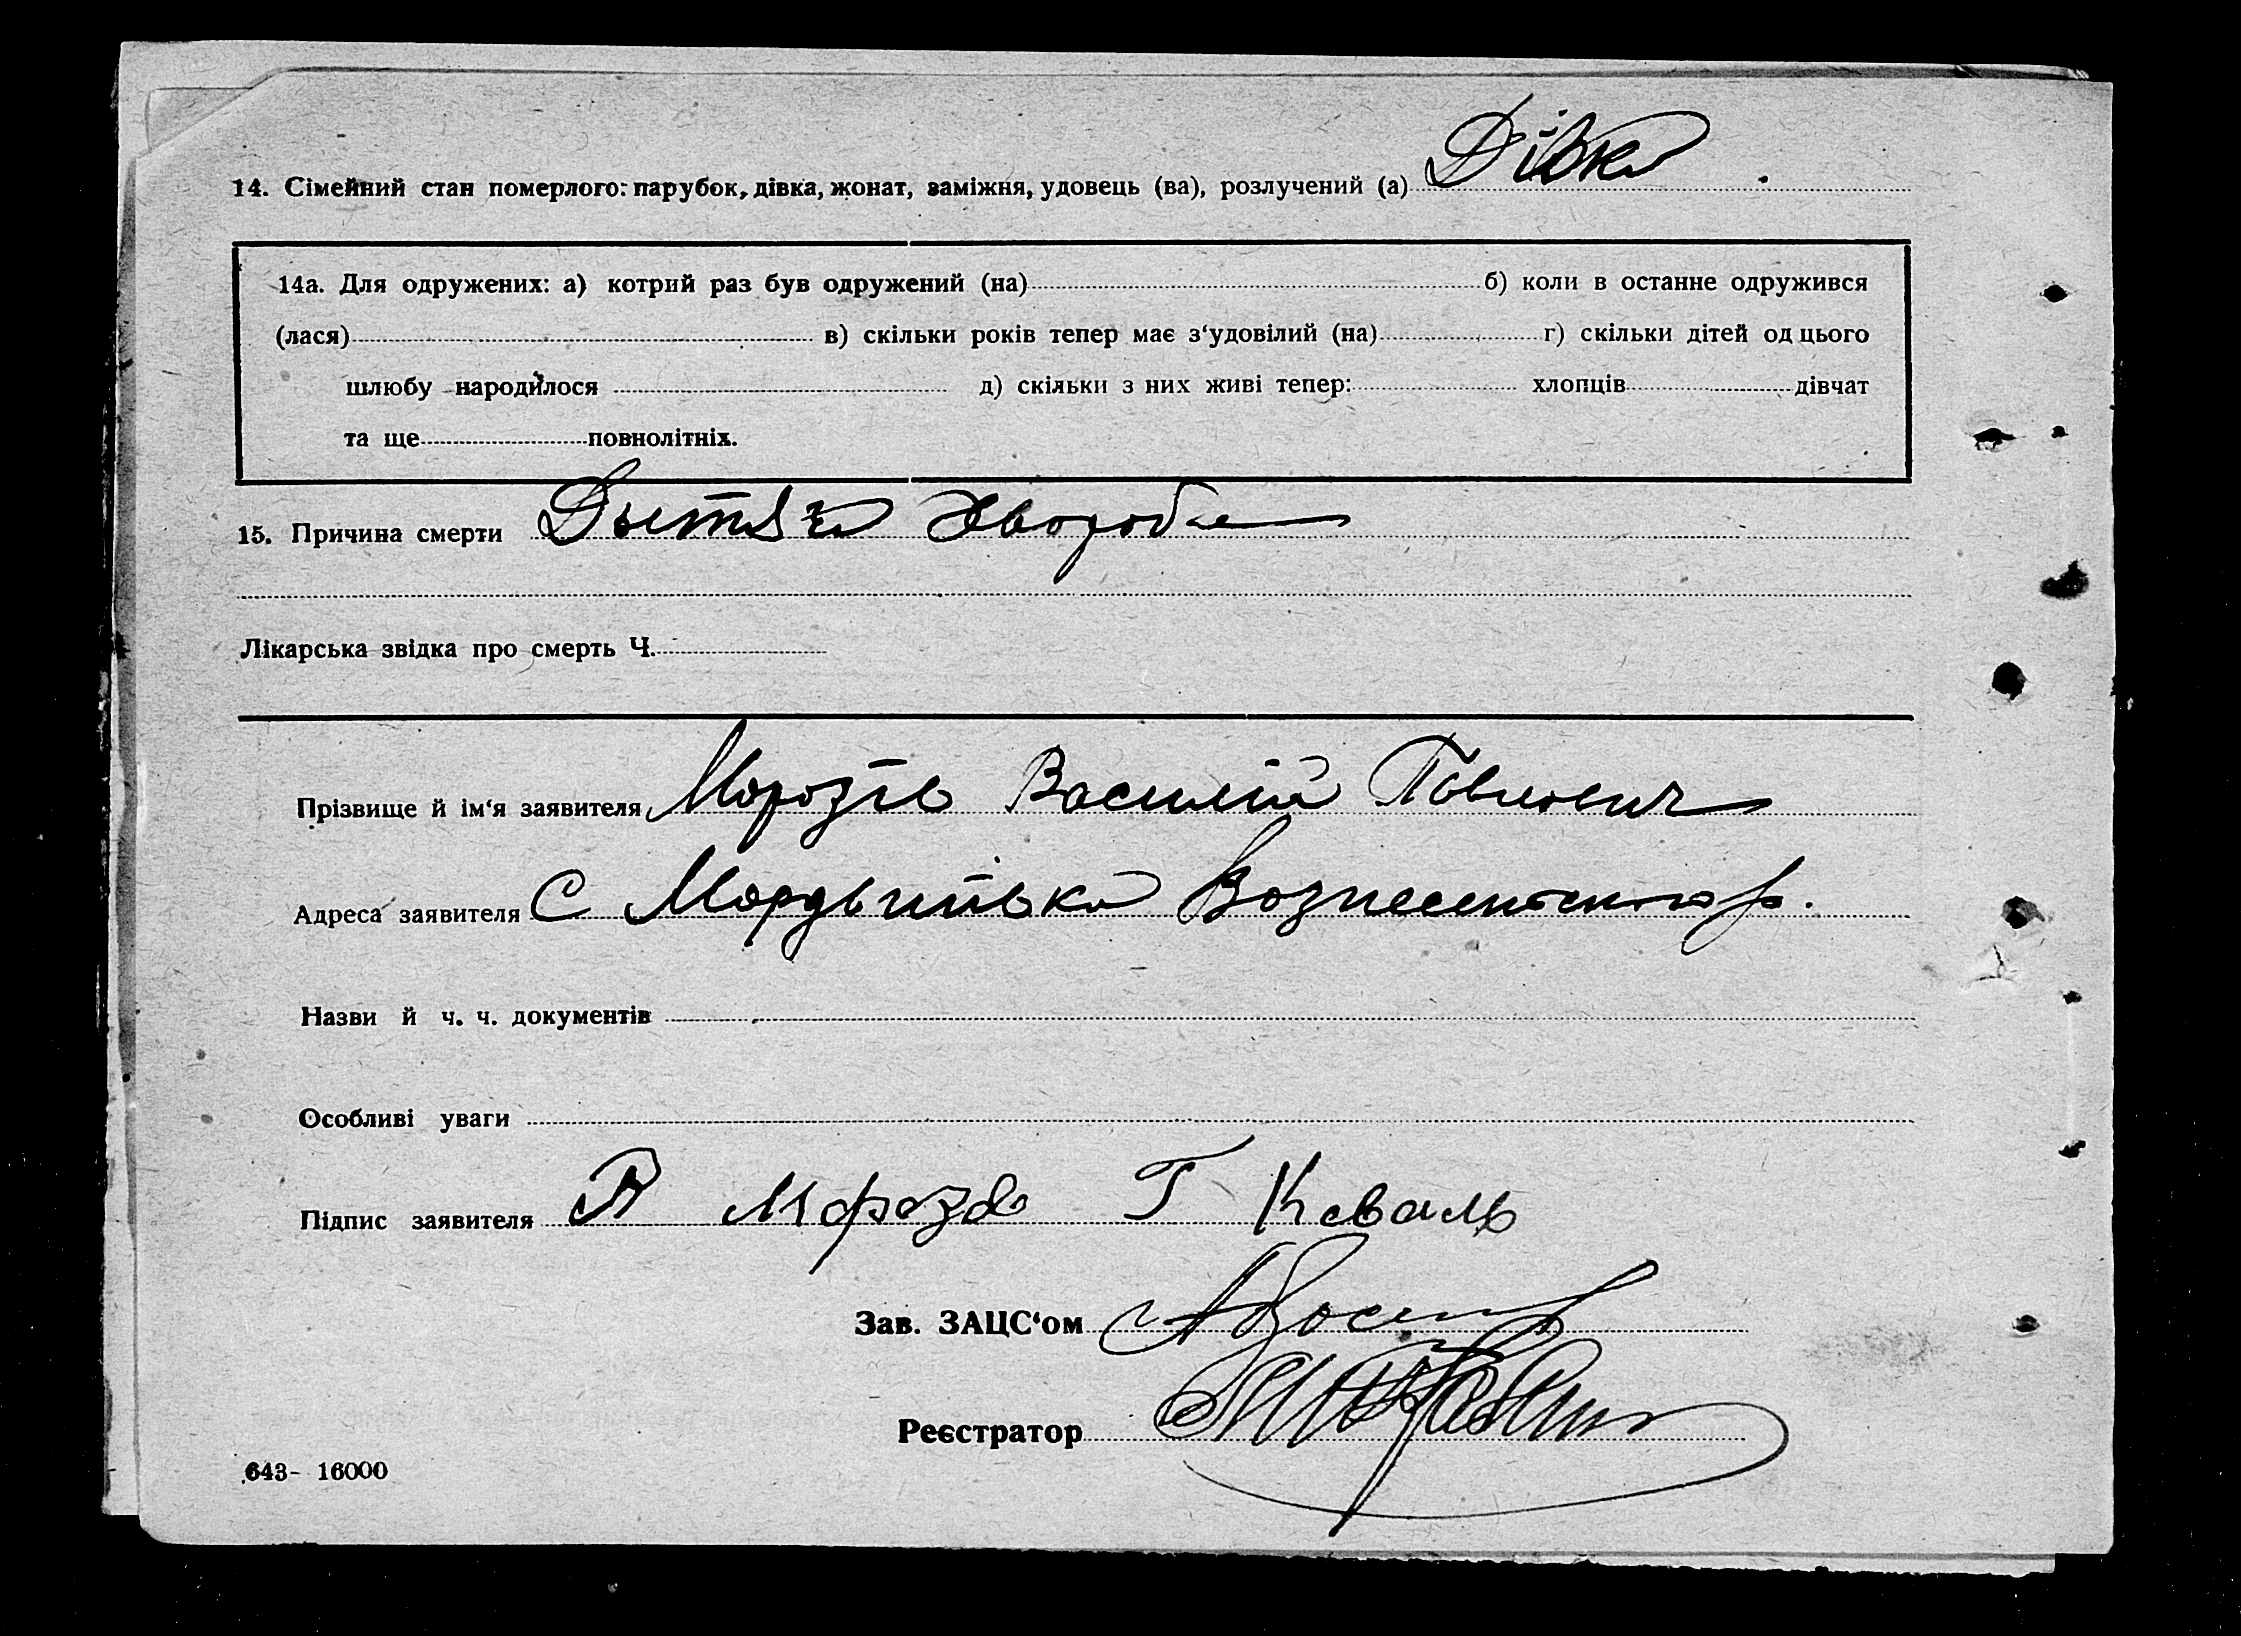 14. Сімейний стан померлого: парубок, дівка, жонат, заміжня, удовець (ва), розлучений (а) Дівка
14а. Для одружених: а) котрий раз був одружений (на) б) коли в останне одружився
(лася) в) скільки років тепер має з‘удовілий (на) г) скільки дітей од цього
шлюбу народилося д) скільки з них живі тепер: хлопців дівчат
та ще повнолітніх.
15. Причина смерти Дытяча Хвороба
Лікарська звідка про смерть Ч.
Прізвище й ім‘я заявителя Морозів Василій Павлович
Адреса заявителя С Мордвинівка Вознесенського р.
Назви й ч. ч. документів
Особливі уваги
Підпис заявителя Морозов Г Коваль
Зав. ЗАЦС‘ом
Реєстратор
643- 16000